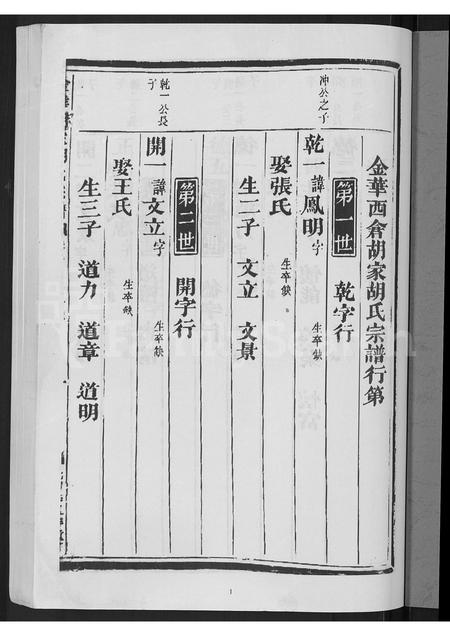 金華西倉胡家胡氏宗譜行第
第一世 乾字行
冲公之子
乾一 諱鳳明 字 生卒缺
娶張氏 生卒缺
生二子 文立 文景
第二世 開字行
乾一公長子
開一 諱文立 字 生卒缺
娶王氏 生卒缺
生三子 道力 道章 道明
1